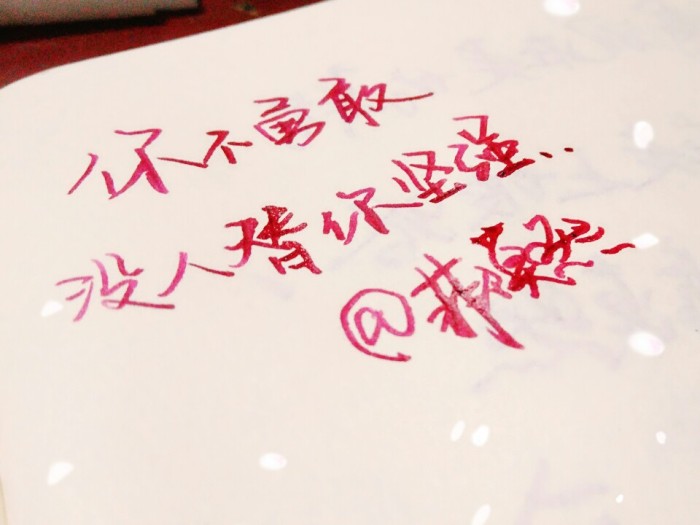 你不勇敢
没人替你坚强..
@